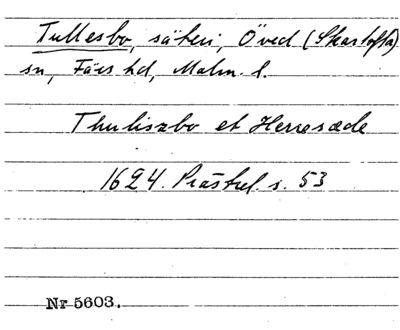 Tullesbo, säteri, Öved (Skartofta)
sn, Färs hd, Malm. l.
Thuliszbo et Herresæde
1624. Prästrel s. 53
Nr 5603.